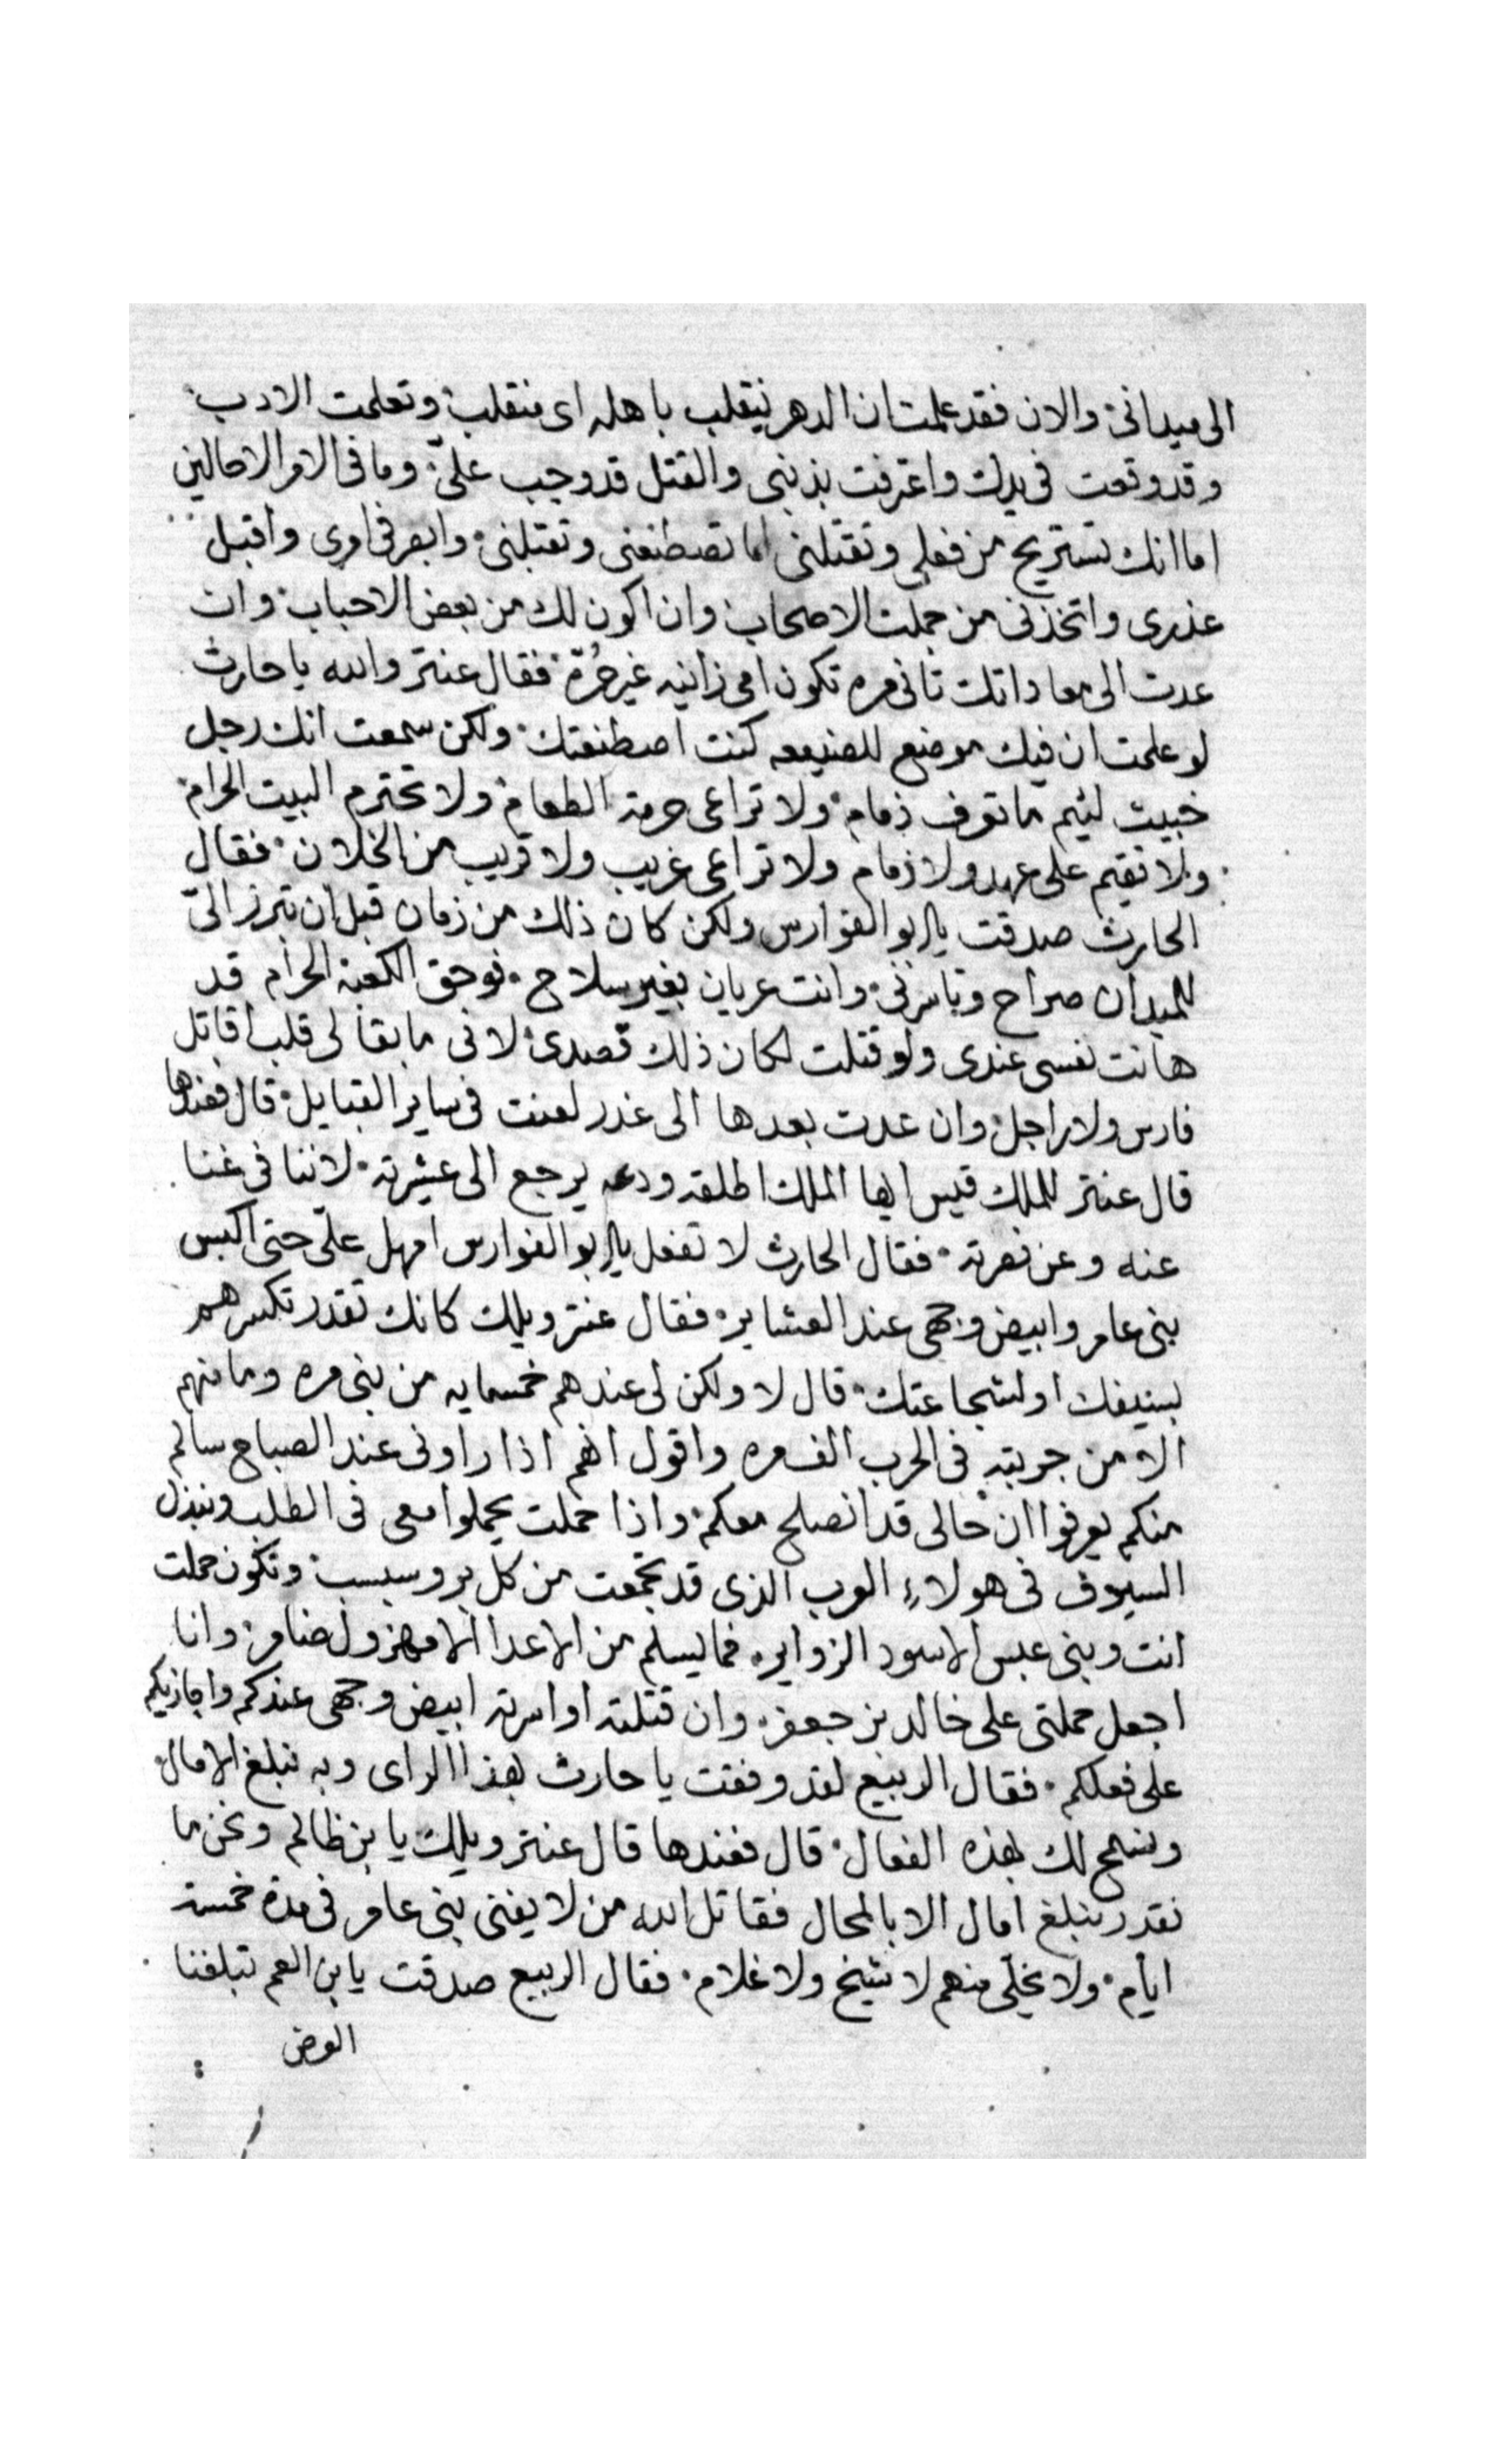 الى ميدانى والان فقد علمت ان الدهر يتقلب باهله اى منقلب وتعلمت الادب
وقد وقعت فى يدك واعترفت بذنبى والقتل قد وجب علىّ وما فى الامر الا حالين
اما انك تستريح من فعلى وتقتلنى اما تصطنعنى وتقبلنى وابصر فى امرى واقبل
عذرى واتخذنى من جملت الاصحاب وان اكون لك من بعض الاحباب وان
عدت الى معاداتك تانى مره تكون امى زانيه غير حُرّة فقال عنتر والله يا حارث
لو علمت ان فيك موضع للصنيعه كنت اصطنعتك ولكن سمعت انك رجل
خبيث لئيم ما توف ذمام ولا تراعى حرمة الطعام ولا تحترم البيت الحرام
ولا تقيم على عهد ولا ذمام ولا تراعى غريب ولا قريب من الخلان فقال
الحارث صدقت يا ابو الفوارس ولكن كان ذلك من زمان قبل ان تبرز الىّ
للميدان صراح وتاسرنى وانت عريان بغير سلاح فوحق الكعبة الحرام قد
هانت نفسى عندى ولو قتلت لكان ذلك قصدى لانى ما بقا لى قلب اقاتل
فارس ولا راجل وان عدت بعدها الى غدر لعنت فى ساير القبايل قال فعندها
قال عنتر للملك قيس ايها الملك اطلقه ودعه يرجع الى عشيرته لاننا فى غنا
عنه وعن نصرته فقال الحارث لا تفعل يا ابو الفوارس امهل علىّ حتى اكبس
بنى عامر وابيض وجهى عند العشاير فقال عنتر ويلك كانك تقدر تكسرهم
بسيفك او لشجاعتك قال لا ولكن لى عندهم خمسمايه من بنى مره وما منهم
الا من جربته فى الحرب الف مره واقول انهم اذا راونى عند الصباح سالم
منكم يعرفوا ان حالى قد انصلح معكم واذا حملت يحملوا معى فى الطلب ونبذل
السيوف فى هولاء العرب الذى قد تجمعت من كل بر وسبسب وتكون حملت
انت وبنى عبس الاسود الزواير فما يسلم من الاعدا الا مهزول ضامر وانا
اجعل حملتى على خالد بن جعفر وان قتلته او اسرته ابيض وجهى عندكم واجازيكم
على فعلكم فقال الربيع لقد وفقت يا حارث بهذا الراى وبه تبلغ الامال
ونسمح لك بهذه الفعال قال فعندها قال عنتر ويلك يا بن ظالم ونحن ما
نقدر نبلغ امال الا بالمحال فقاتل الله من لا يفنى بنى عامر فى مدة خمسة
ايام ولا يخلّى منهم لا شيخ ولا غلام فقال الربيع صدقت يا بن العم تبلغنا
الغرض